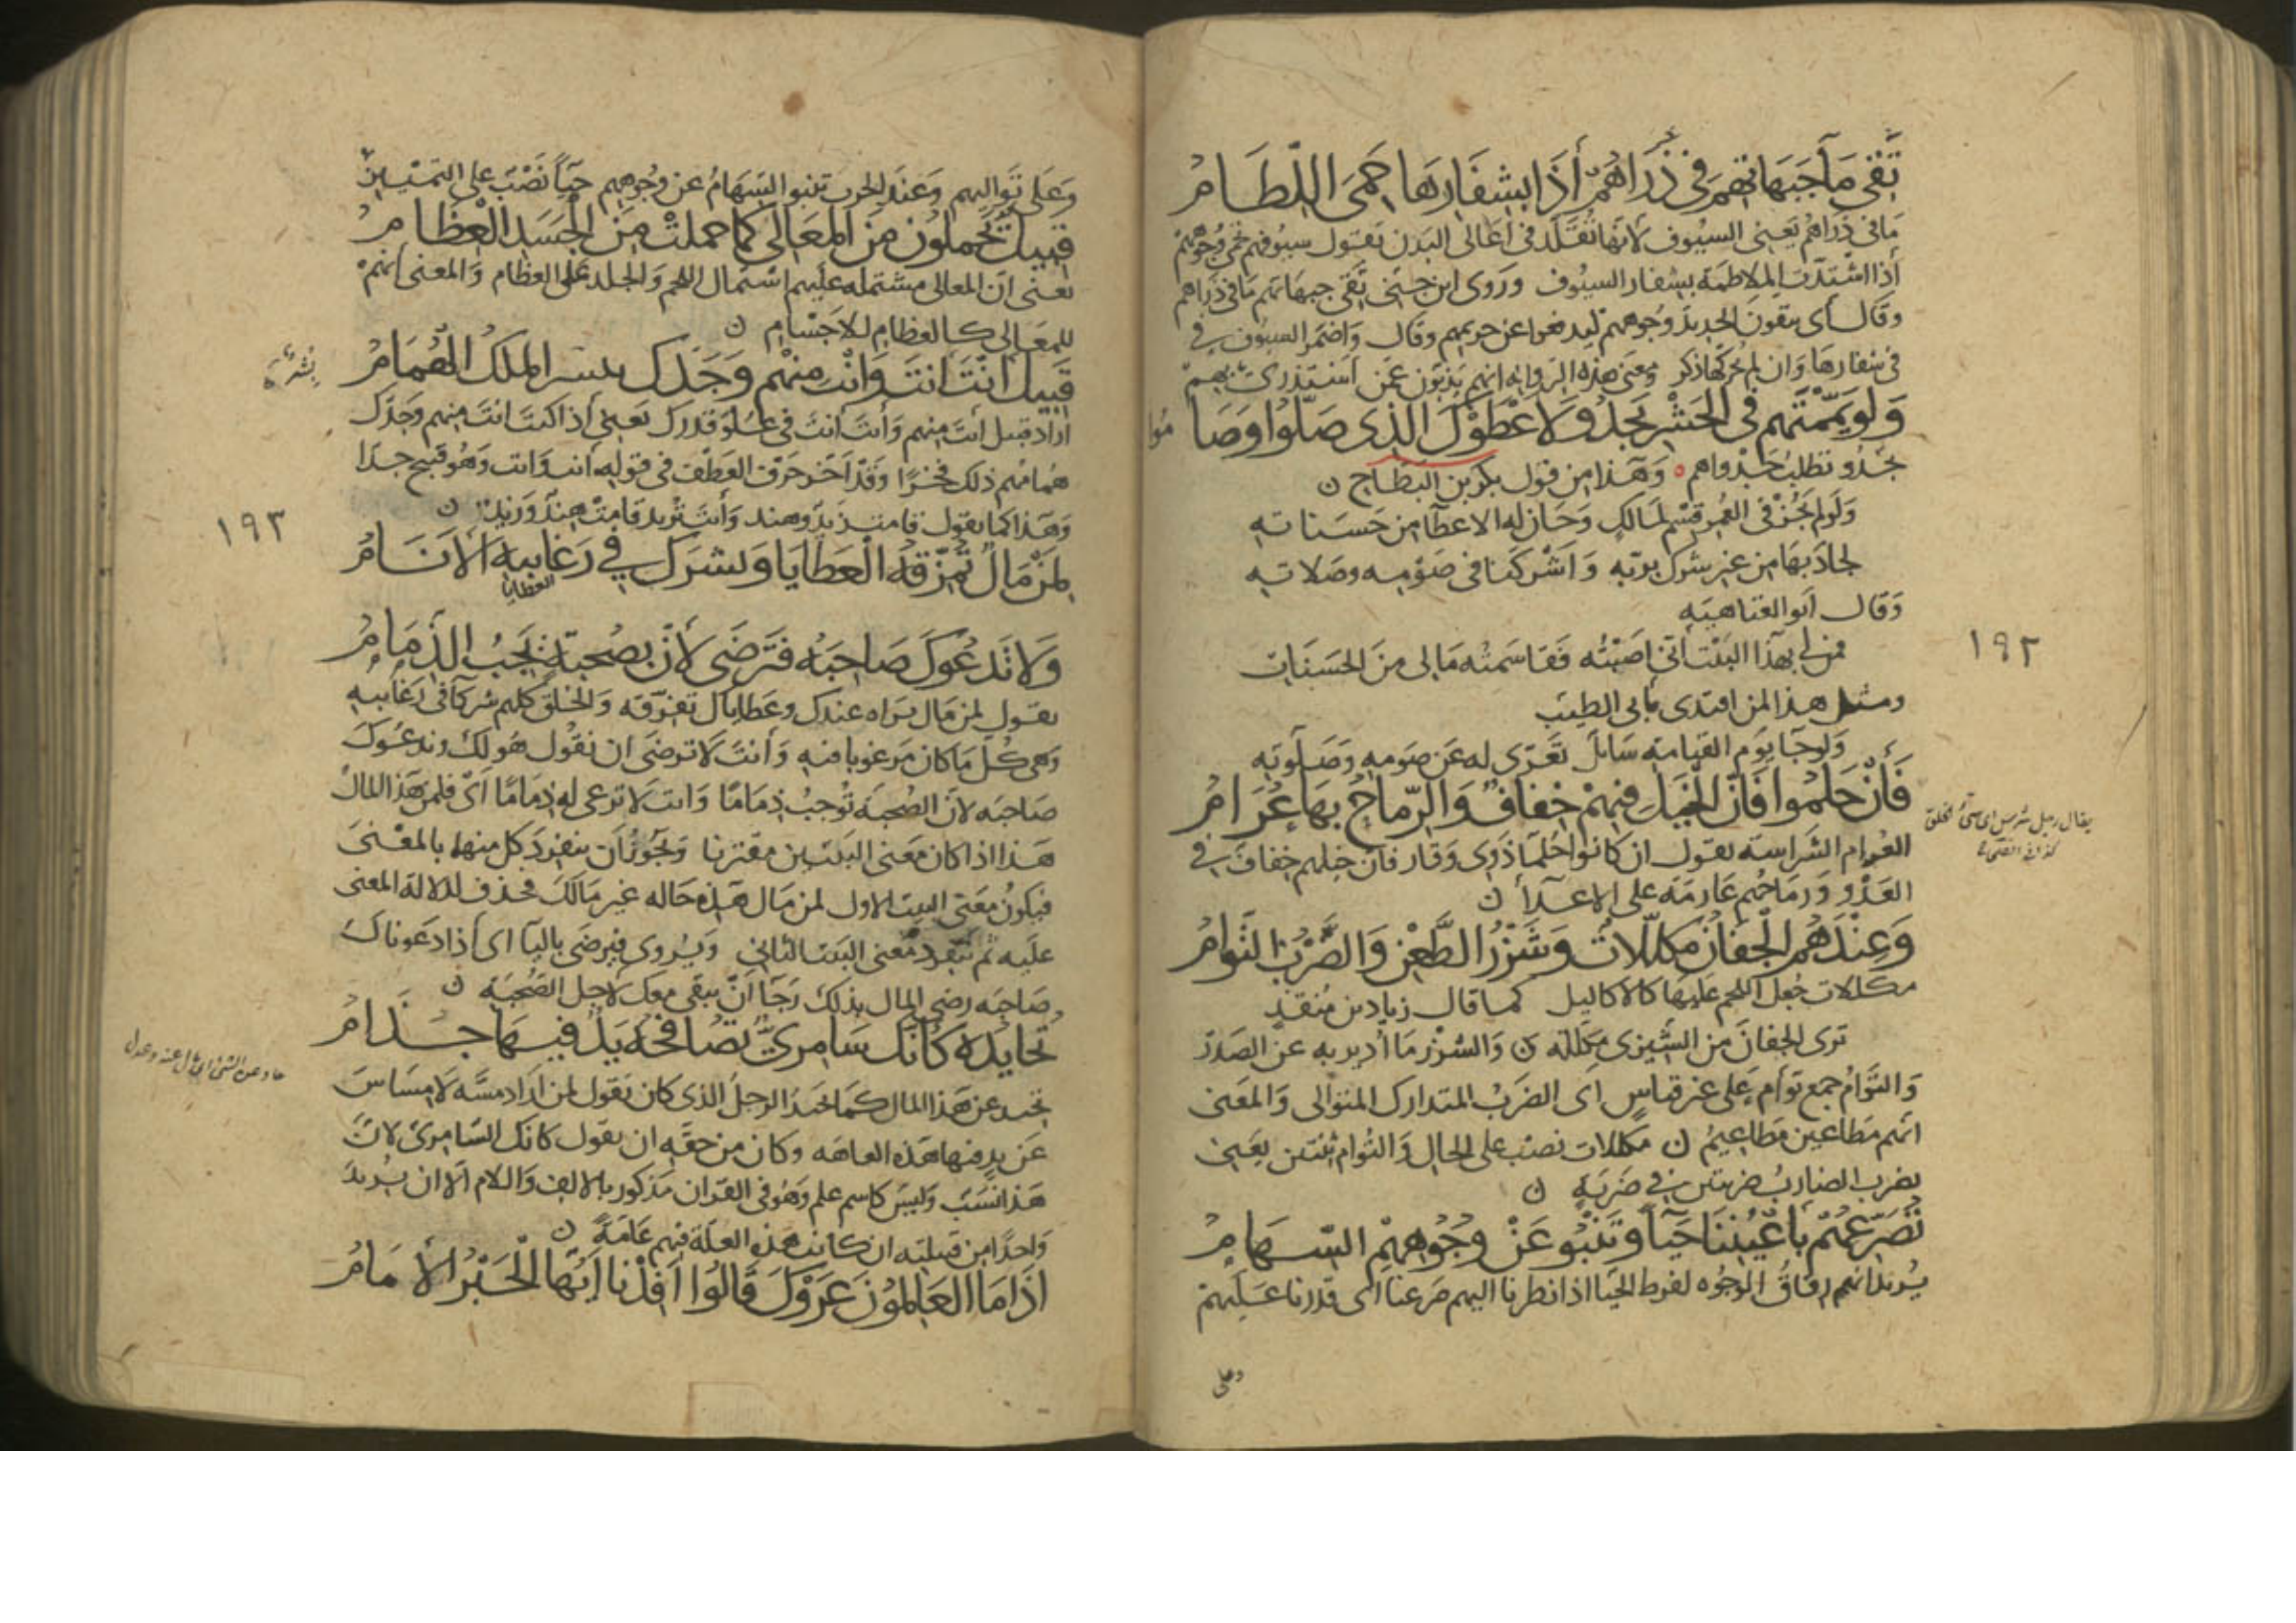 تَقِي مَا جَبَهَاتِهُم فِي ذَرَاهُمْ أَذَا بِشِفَارِهَا حَمِيَ اللِّطَامُ
مَا فى ذراهم يعنى السيوف لانها تُقَلَّد فى اعالى البدن يقول سيوفهم تحمى وجوههم
أذا اشتدّت الملاطمة بشفار السيوف وروى ابن جنى تقى جبهاتهم ما فى ذراهم
وقال أى يتقون الحديد وُجوههم ليدفعوا عن حريمهم وقال واضمر السيوف فى
فى شفارها وان لم يجر لها ذكر ومعنى هذه الرواية انهم يذبّون عمّن استذرى بهم
وَلَو يَمَّمْتَهُم فِى الحَشْرِ تَجْدُو لَأَعْطَوْكَ الَّذِى صَلَّوا وَصَامُوا
تجدو تطلب جدواهم وهذا من قول بكر بن النطاح ن
وَلَو لم يجز فى العُمر قسم لمالك وَجاز له الاعطا من حسناته
لجاد بها من غير شرك بربّه وَاشركنا فى صومه وصلاته
وقال ابو العتاهيه
فمن لى بهذا البيت أنى اصبته فقاسمته ما لى من الحسنات
ومثل هذا لمن اقتدى بابى الطيب
وَلو جا يوم القيامة سائل تعرّى له عن صومه وَصلوته
فَأَنْ حَلُمُوا فَأِنَّ الْخَيْلَ فِيهِمْ خِفَافٌ وَالرِّمَاحُ بِهَا عُرَامُ
يقال رجل شرس اى سيّئ الخلق
كذا فى الصحاح
العُرام الشراسة يقول ان كانوا حُلمآ ذوى وقار فان خيلهم خفاف فى
العَدْوِ وَرماحُهم عَارمَة على الاعدآ ن
وَعِنْدَهُم الْجِفَانُ مُكَلَّلَاتٌ وَشَزْرُ الطَّعْنِ وَالضَّرْبُ التُوَامُ
مكللات جُعِل اللحم عليها كالاكاليل كما قال زياد بن مُنقذ
ترى الجفان من الشيزى مكللة ن وَالشزر ما أدير به عن الصدر
وَالتوام جمع توأم على غير قياس اى الضرب المتدارك المتوالى وَالمعنى
انهم مَطاعين مَطاعيمُ ن مكللات نصب على الحال وَالتوام ثنتين يعنى
يضرب الضارب ضربتين فى ضربة ن
نُصَرِّعُهُمْ بِأَعْيُنِنَا حَيَآً وَتَنْبُو عَنْ وُجُوهِهِمِ السِّهَامُ
يُريد انهم رقاق الوجُوه لفرط الحَيا اذا نظرنا اليهم صرعنا اى قدرنا عليهم
وعلى
١٩٢
وَعَلى توّاليهم وَعند الحرب تنبو السهام عن وجوههم حيآً نَصْب على التمييز
قَبِيلٌ يَحْمِلُونَ مِنَ الْمَعَالِى كَمَا حَمَلَتْ مِنَ الْجَسَدِ الْعِظَامُ
يعنى ان المعالى مشتمله عليهم اشتمال اللحم وَالجلد على العظام وَالمعنى انهم
للمعَالى كالعظام للاجسام ن
قَبِيلٌ أَنْتَ أَنْتَ وَأَنْتَ مِنْهُم وَجَدُّكَ بشر الملكُ الهُمَامُ
بشرٌ
اراد قبيل أنت منهم وَأنت أنت فى عُلوّ قدرك يعنى أذا كنت انت منهم وجدّك
هُمامُهم ذلك فخرًا وَقد أخّر حرف العطف فى قوله أنت وَانت وَهُو قبيح جدّا
وَهذا كما يقول قامت زيد وهند وَأنت تريد قامت هند وَزيد ن
١٩٣
لِمَنْ مَالٌ تُمَزِّقُهُ الْعَطَايَا وَيَشْرَكُ فِي رَغَايبِهِ الْأَنَامُ
العطايا
وَلَا نَدْعُوكَ صَاحِبَهُ فَتَرْضَى لأَنَّ بِصُحْبَةٍ يَجِبُ الذِّمَامُ
يقول لمن مال يراه عندك وعطاياك تفرّقه وَالخلق كلهم شركآ فى رغايبه
وَهى كلّ ما كان مرغوبا فيه وَأنت لا ترضى ان نقول هو لك وندعُوك
صاحبَه لانّ الصُحبَة تُوجب ذِمَامًا وَانت لا ترعى له ذِمَامًا اى فلمن هَذا المال
هَذا اذا كان معنى البيتين مقترنا وَيجوز أن ينفرد كل منهما بالمعْنى
فيكونُ معنى البيت الاول لمن مال هَذه حاله غير مالك فحذف لدلالة المعنى
عليه ثم تفرد معنى البيت الثانى وَيروى فيرضى باليا اى أذا دعوناك
صاحبَه رضى المال بذلك رجآ أن يبقى معك لاجل الصُحبَة ن
تُحَايِدُهُ كَأَنَّكَ سَامِرِيٌّ تُصَافِحُهُ يَدٌ فِيهَا جُذَامُ
حاد عن الشئ اى مال عنه وعدل
تحيد عن هَذا المال كما يحيد الرجلُ الذى كان يقول لمن اراد مسّه لا مِسَاسَ
عَن يدٍ فيها هَذه العاهه وكان من حقّه ان يقول كانك السّامرىّ لانّ
هَذا نسَب وَليس كاسم علم وَهُو فى القران مَذكور بالالف وَاللام الّا ان يُريد
وَاحدًا من قبيلته ان كانت هَذه العلّة فيهم عَامّةً ن
أِذَا مَا الْعَالِمُونَ عَرَوْكَ قَالُوا أَفِدْنَا أَيُّهَا الْحَبْرُ الْأِمَامُ